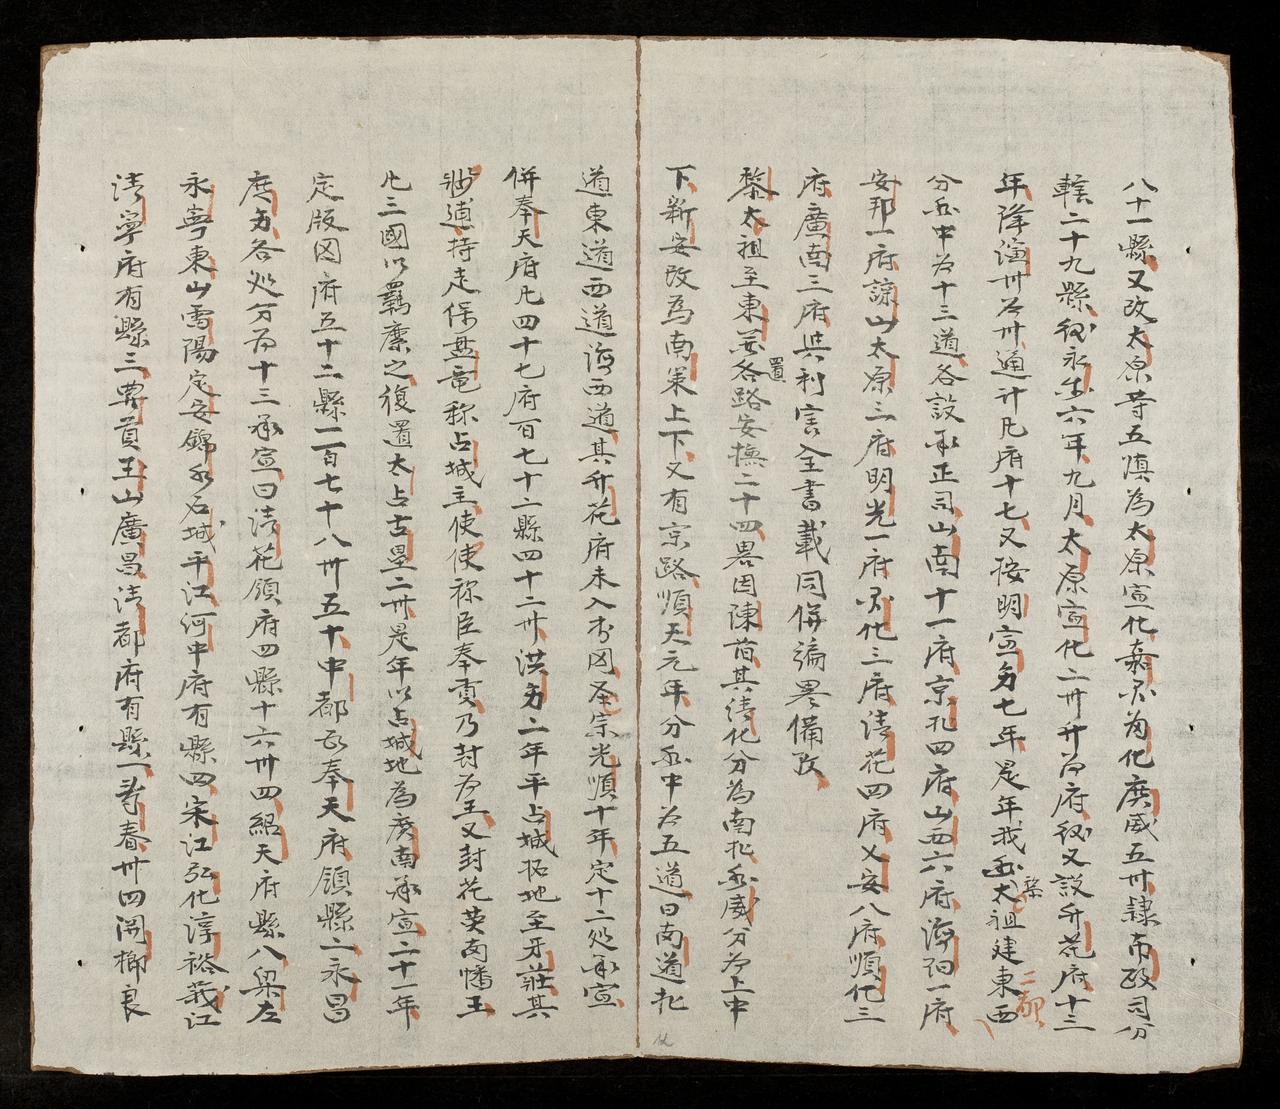 八十一縣又改太原等五鎮為太原宣化嘉興歸化廣威五州隷布政司分
轄二十九縣後永乐六年九月太原宣化二州升為府後又設升花府十三
年降演州為州通计凡府十七又按明宣务七年是年我黎太祖建東西二都
分國中为十三道各設承正司山南十一府京北四府山西六府海陽一府
安邦一府諒山太原三府明光一府興化三府清花四府乂安八府順化三
府廣南三府與利害全書載同併編畧備攷
黎太祖至東都各路置安撫二十四畧因陳旧其清化分為南北國威分为上中
下新安改為南策上下又有宗路順天元年分國中为五道曰南道北
道東道西道海西道其升花府未入本图圣宗光順十年定十二処承宣
併奉天府凡四十七府百七十二縣四十二州洪务二年平占城拓地至牙莊其
將逋持走保藩竜称占城主使使称臣奉貢乃封为王又封花英南幡王
凡三國以羈縻之復置太占古壘二州是年以占城地為廣南承宣二十一年
定版图府五十二縣一百七十八州五十中都為奉天府領縣二永昌
庶务各処分为十三承宣曰清花領府四縣十六州四紹天府縣八梁左
永寧東山雷陽定安錦水石城平江河中府有縣四宋江弘化淳祐莪江
清寧府有縣三農貢玉山廣昌清都府有縣一寿春州四関榔良